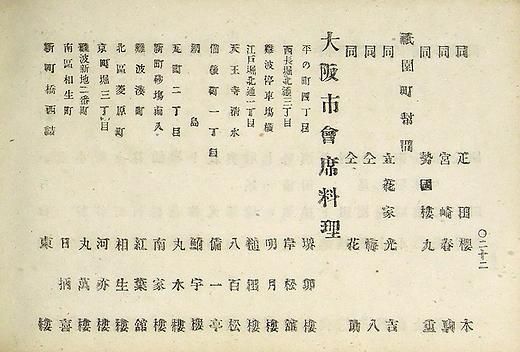 同 疋田櫻木
同 宮崎春駒
同 勢國樓九重
祇園町幇間
同 立花家光吉
同 仝 梅八
同 仝 花助
大阪市會席料理
平の町四丁目 堺卯樓
西長堀北通三丁目 岸松舘
難波停車塲橫 明月樓
江戸堀北通一丁目 樓
天王寺淸水 八百松
備後町一丁目 備一亭
網島 鮒宇樓
瓦町二丁目 丸水樓
新町砂塲南入 南家樓
難波湊町 紅葉舘
北區菱原町 相生樓
京町堀三丁目 河亦樓
難波新地二番町 丸萬樓
南區相生町 日柄喜
新町橋西詰 東樓
〇二十二